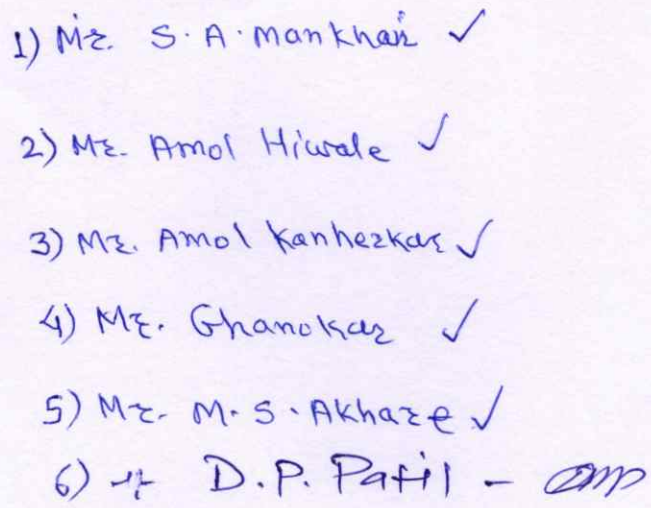 1) Mr. S. A. Mankhair ✓
2) Mr. Amol Hiwale ✓
3) Mr. Amol Kanherkar ✓
4) Mr. Ghanokar ✓
5) Mr. M. S. Akhare ✓
6) D. P. Patil -